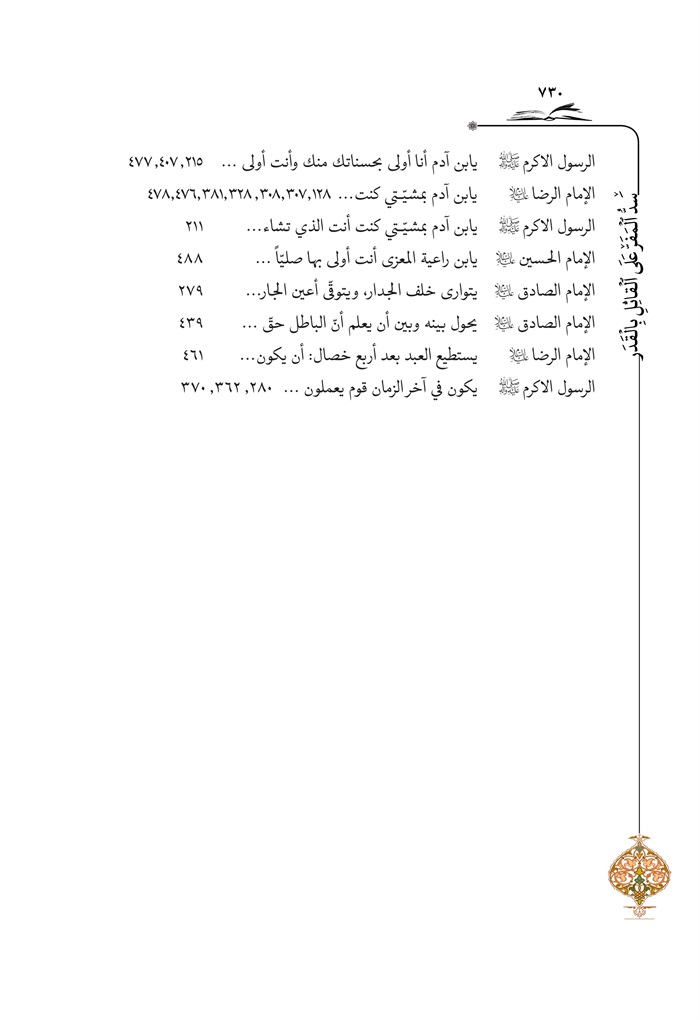 ٧٣٠
سَدُّ الْمَفَرِّ عَلَى الْقَائِلِ بِالْقَدَر
الرسول الاكرم ﷺ يابن آدم أنا أولى بحسناتك منك وأنت أولى ... ٢١٥, ٤٠٧, ٤٧٧
الإمام الرضا عليه السلام يابن آدم بمشيّتي كنت... ١٢٨, ٣٠٧, ٣٠٨, ٣٢٨, ٣٨١, ٤٧٦, ٤٧٨
الرسول الاكرم ﷺ يابن آدم بمشيّتي كنت أنت الذي تشاء... ٢١١
الإمام الحسين عليه السلام يابن راعية المعزى أنت أولى بها صليّاً ... ٤٨٨
الإمام الصادق عليه السلام يتوارى خلف الجدار، ويتوقّى أعين الجار... ٢٧٩
الإمام الصادق عليه السلام يحول بينه وبين أن يعلم أنّ الباطل حقّ ... ٤٣٩
الإمام الرضا عليه السلام يستطيع العبد بعد أربع خصال: أن يكون... ٤٦١
الرسول الاكرم ﷺ يكون في آخر الزمان قوم يعملون ... ٢٨٠, ٣٦٢, ٣٧٠